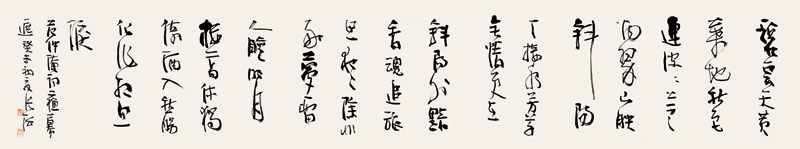 碧雲天黄
葉地秋色
連波〻上寒
烟翠山映
斜陽
天接水芳草
無情更在
斜陽外黯
鄉魂追旅
思夜〻除非
好夢留
人睡明月
樓高休獨
倚酒入愁腸
化作相思
淚
范仲淹詞蘇幕
遮癸未初夏